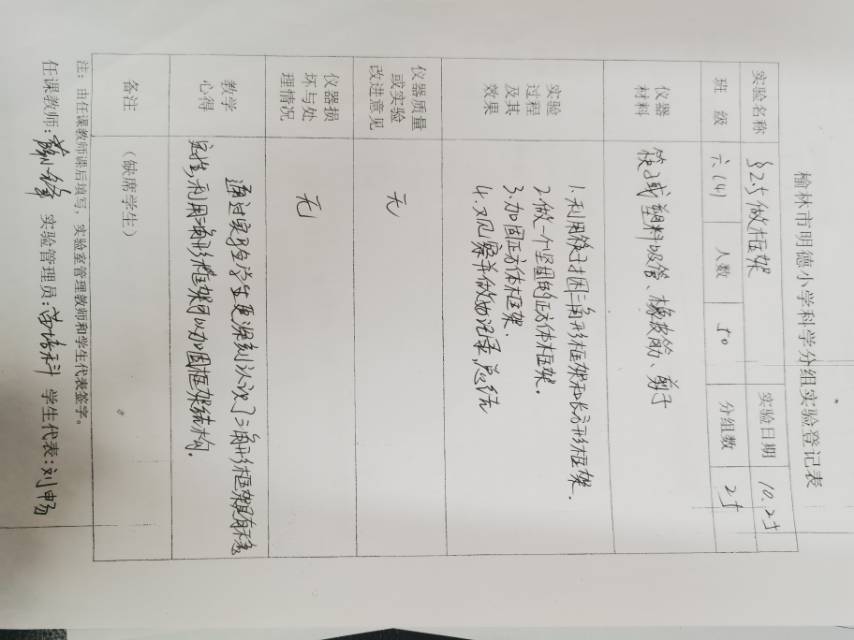 榆林市明德小学科学分组实验登记表
实验名称 §25做框架 实验日期 10.25
班 级 六(4) 人数 50 分组数 25
仪器
材料
筷子或塑料吸管、橡皮筋、剪子
实验
过程
及其
效果
1.利用筷子捆三角形框架和长方形框架.
2.做一个坚固的正方体框架.
3.加固正方体框架.
4.观察并做好记录,总结
仪器质量
或实验
改进意见
无
仪器损
坏与处
理情况
无
教学
心得
通过实验学生更深刻认识了三角形框架具有稳
定性,利用三角形框架可以加固框架结构.
备注
(缺席学生)
注:由任课教师课后填写,实验室管理教师和学生代表签字。
任课教师: 实验管理员: 学生代表:刘畅